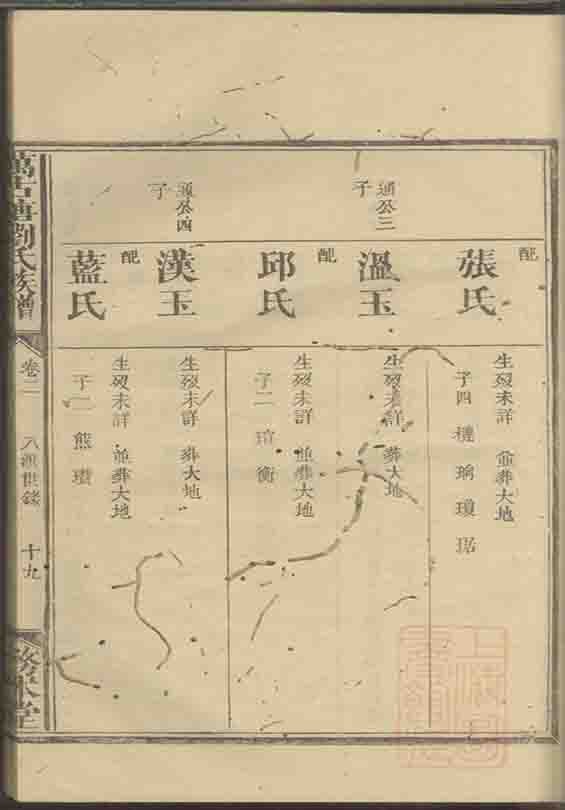 配
張氏
生歿未詳 並葬大地
子四 機 瑀 瓊 琚
通公三
子
溫玉
生歿未詳 葬大地
配
邱氏
生歿未詳 並葬大地
子二 瑄 衡
通公四
子
漢玉
生歿未詳 葬大地
配
藍氏
生歿未詳 並葬大地
子二 熊 瓚
劉氏族譜
卷二
世錄
十九
堂